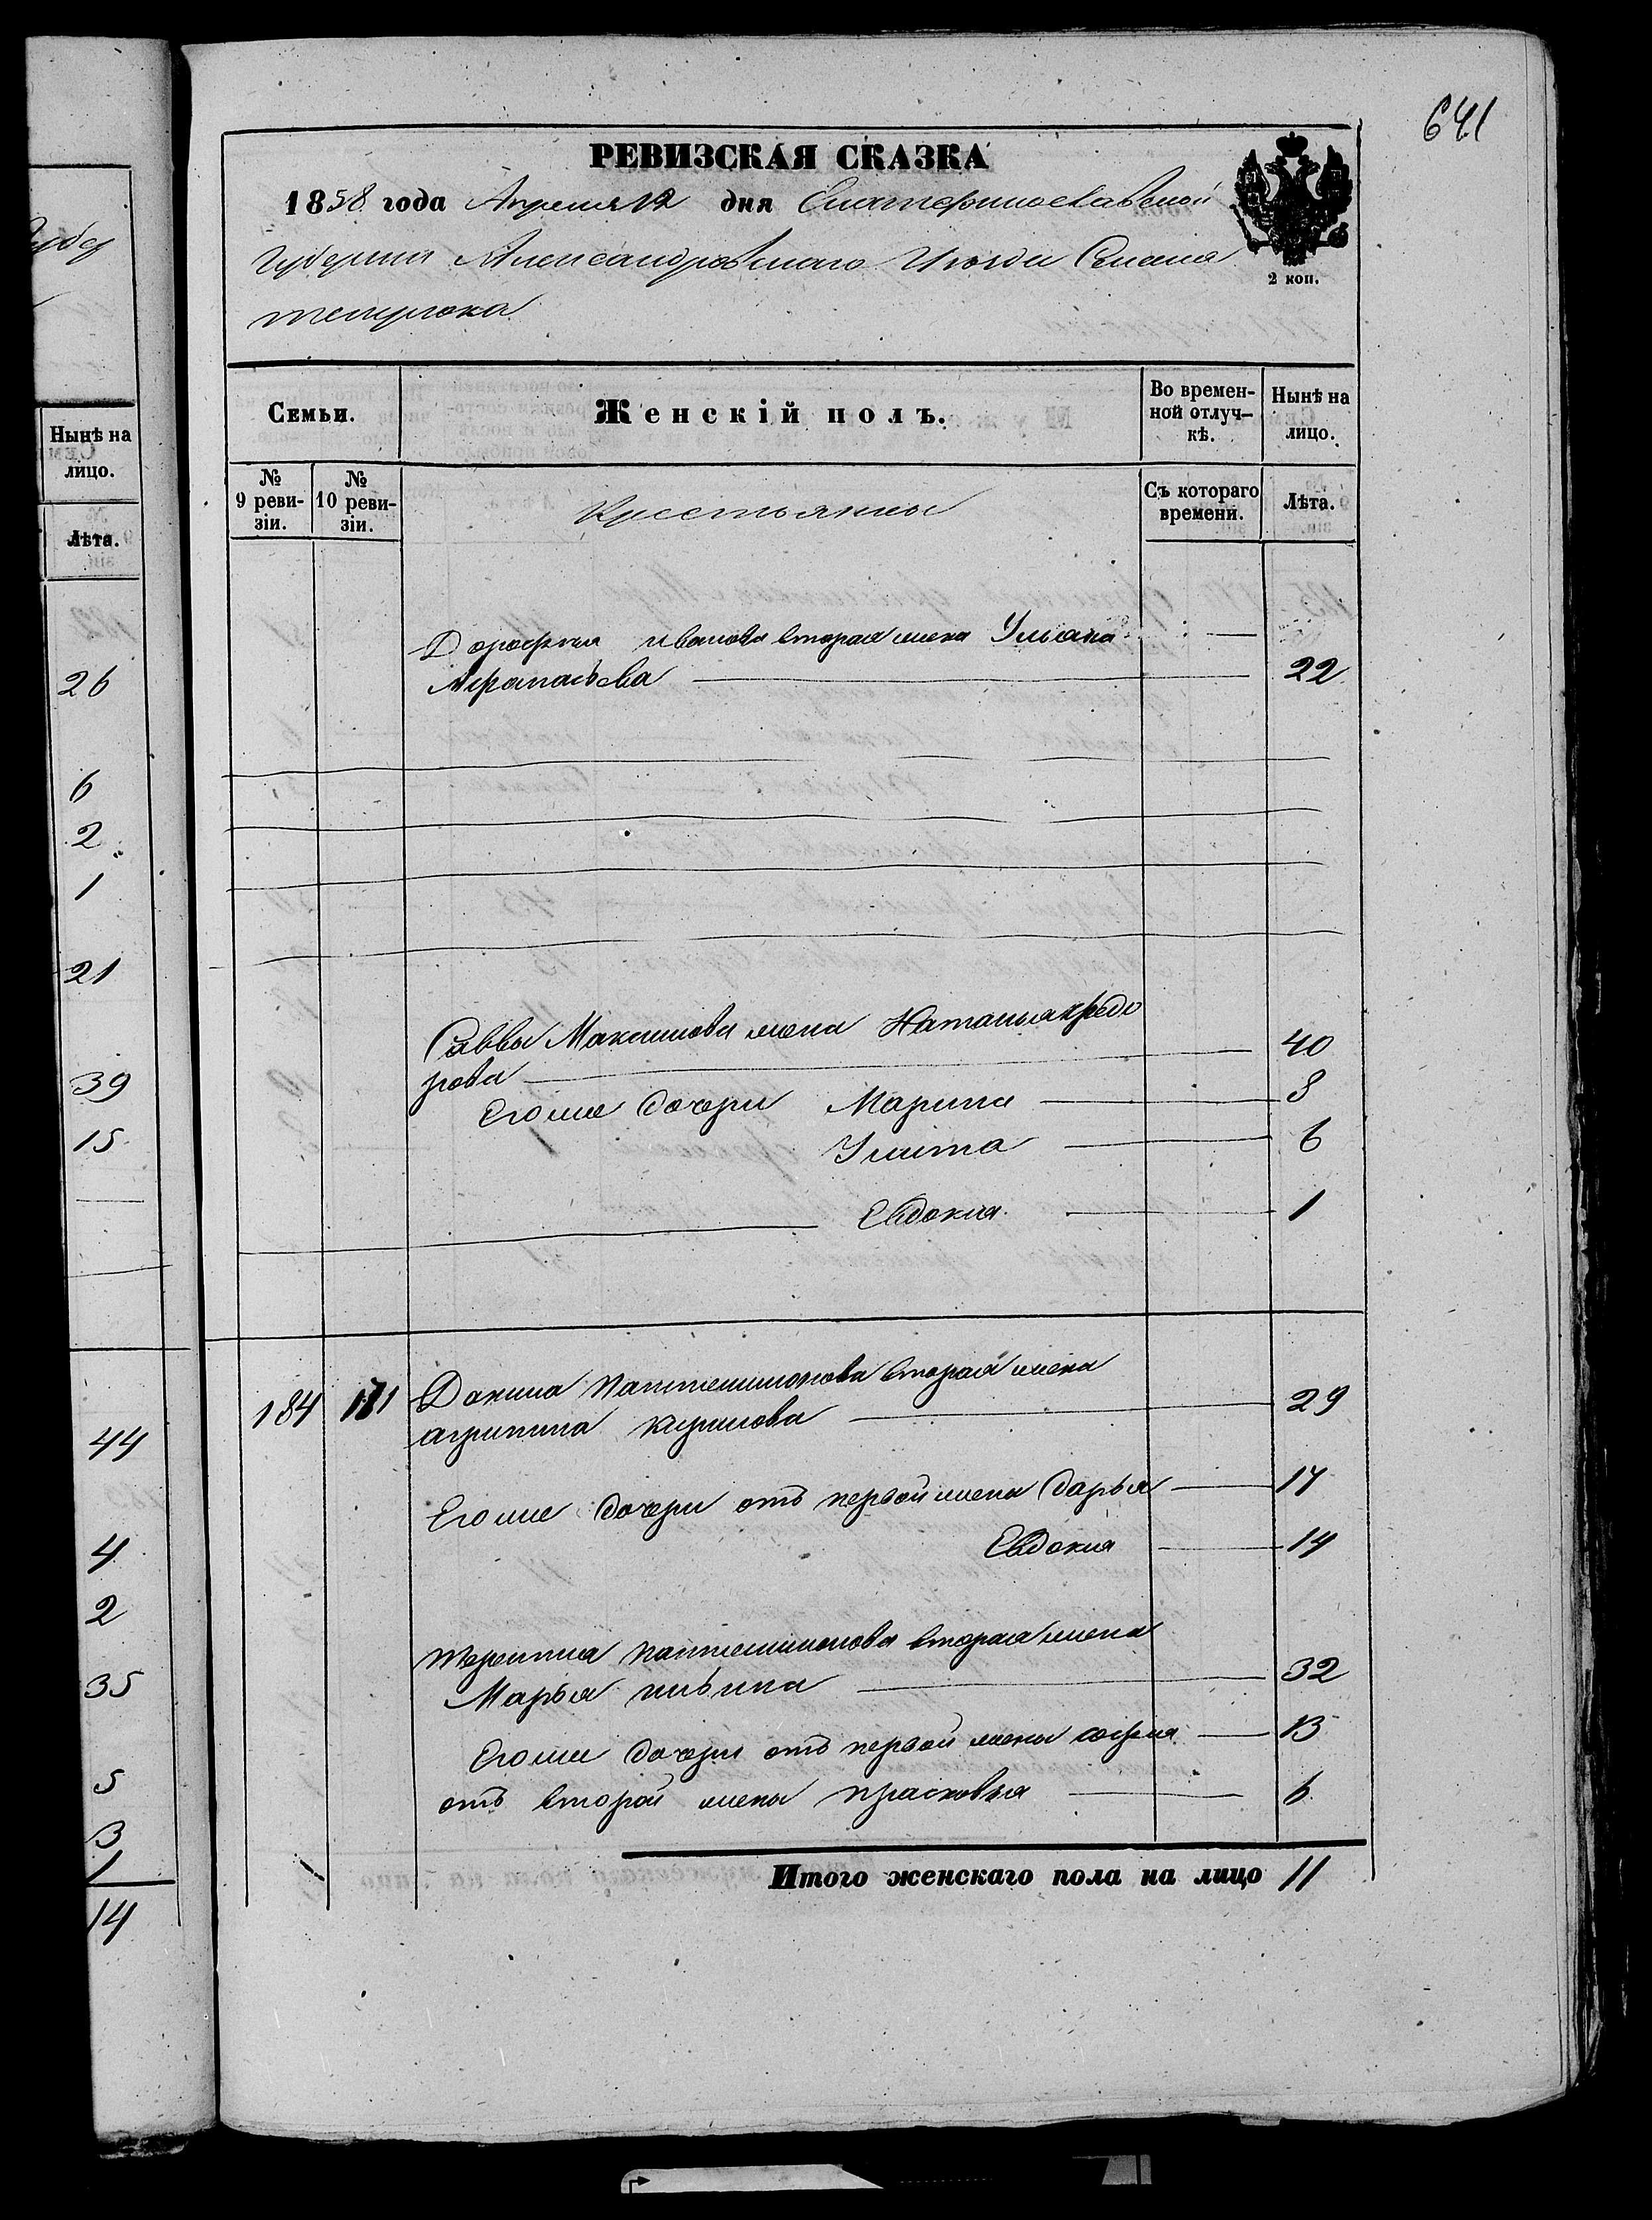 641
РЕВИЗСКАЯ СКАЗКА
1858 года Апреля 12 дня Екатеринославской
Губернии Александровскаго Уѣзда Селенія
темрюка
2 коп.
Семьи.
Женскій полъ.
Во времен-
ной отлуч-
кѣ.
Нынѣ на
лицо.
№
9 реви-
зіи.
№
10 реви-
зіи.
Крестьянки
Съ котораго
времени.
Лѣта.
Дорофея иванова вторая жена Ульяна
22
Саввы Максимова жена Наталья федо
рова 40
Егоже дочери Марина 8
Улита 6
Евдокия 1
184 181 Данила пантелимонова вторая жена
агрипина кирилова 29
Егоже дочери отъ первой жены дарья 17
Евдокия 14
терентия пантелимонова вторая жена
Марья 32
Егоже дочери отъ первой жены софия 13
отъ второй жены прасковья 6
Итого женскаго пола на лицо 11
Нынѣ на
лицо.
Лѣта.
26
6
2
1
21
39
15
44
4
2
35
5
3
1
14